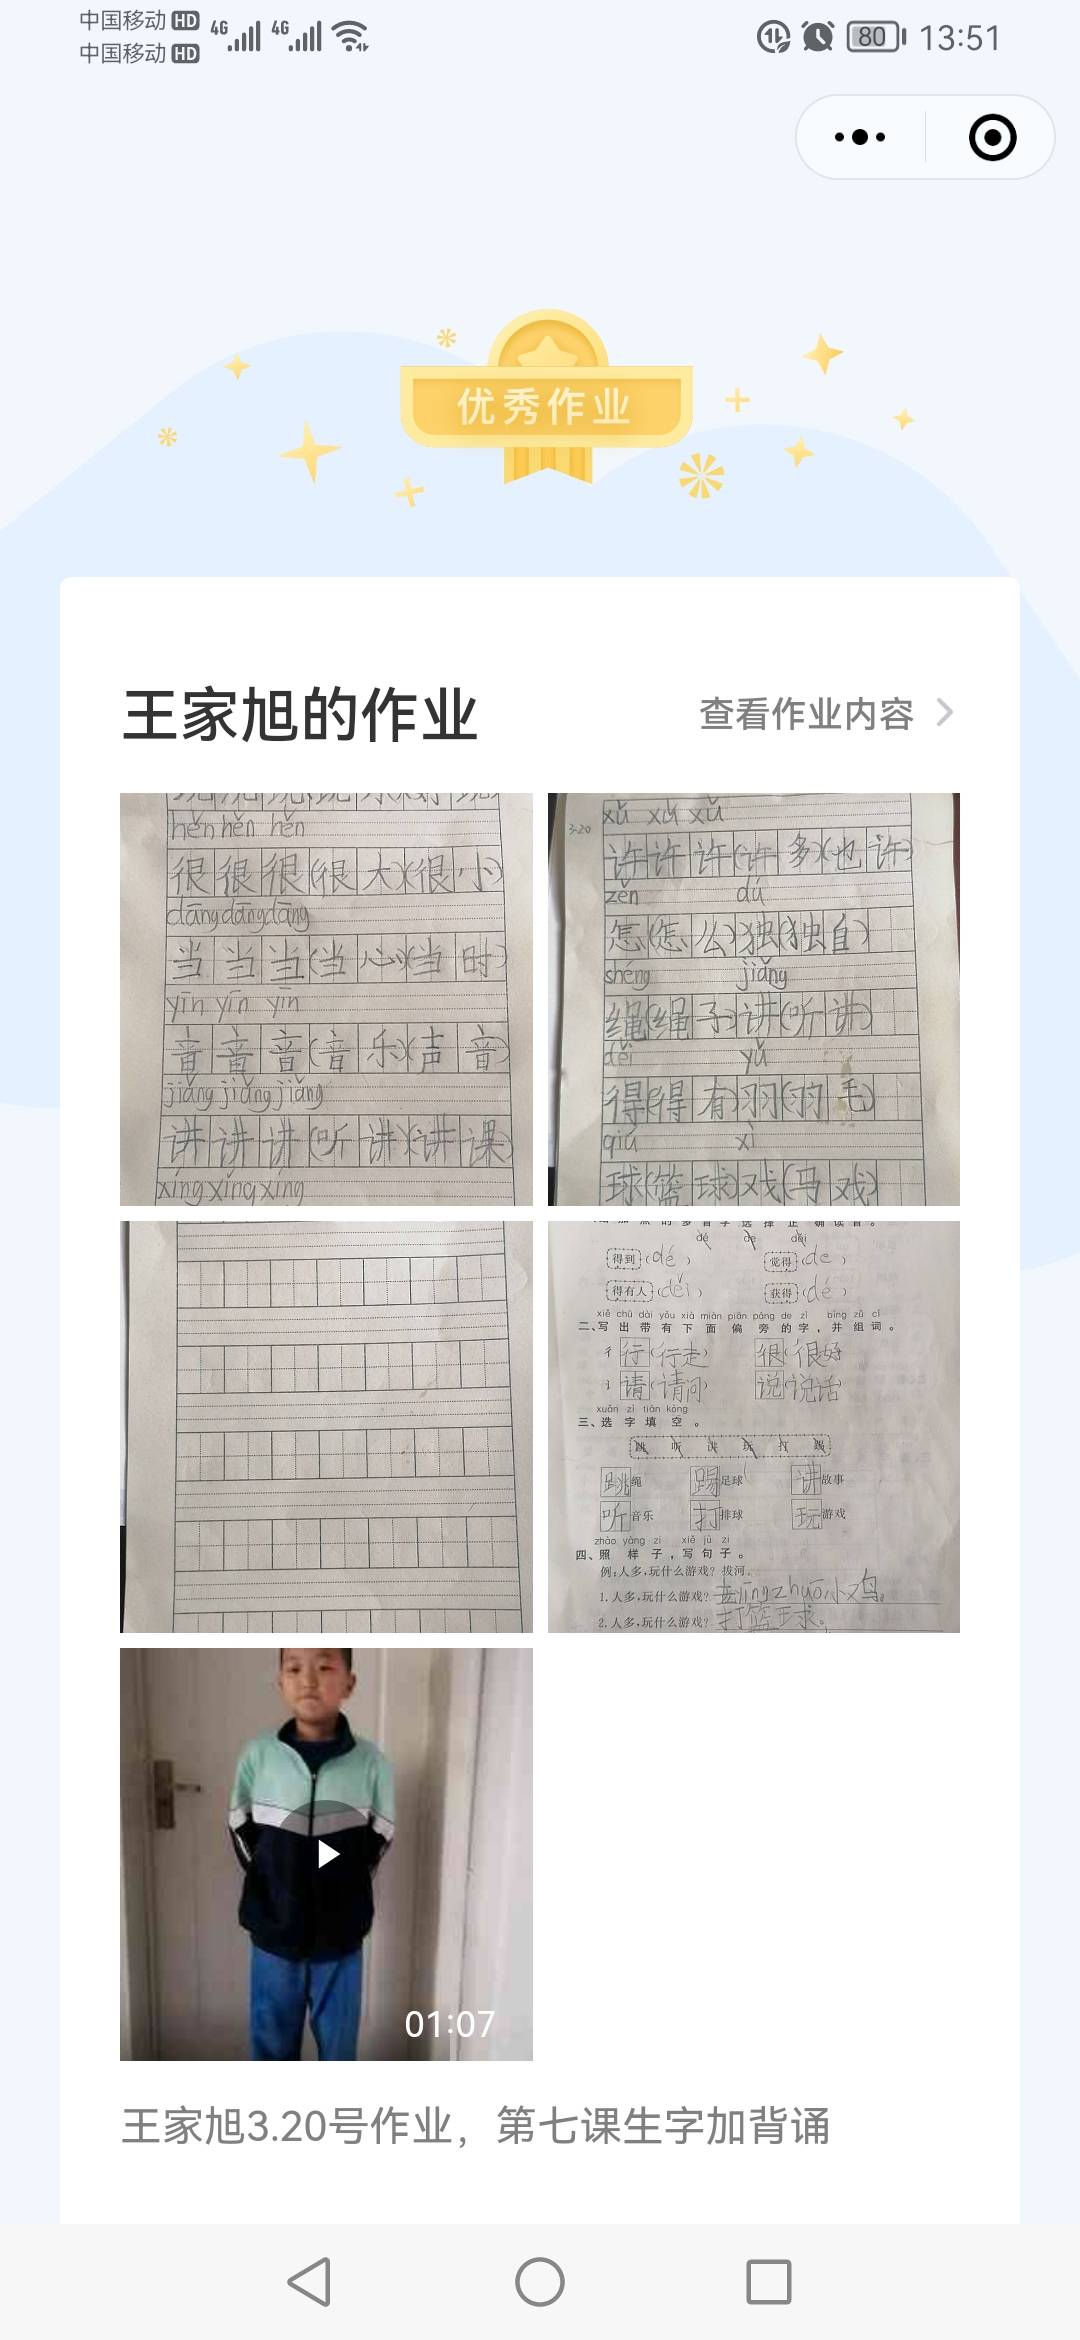 中国移动 HD 4G 4G
中国移动 HD
80 13:51
优秀作业
王家旭的作业
查看作业内容
hěn hěn hěn
很很很(很大)(很小)
dāng dāng dāng
当当当(当心)(当时)
yīn yīn yīn
音音音(音乐)(声音)
jiǎng jiǎng jiǎng
讲讲讲(听讲)(讲课)
xíng xíng xíng
3.20
xǔ xǔ xǔ
许许许(许多)(也许)
zěn dú
怎(怎么)独(独自)
shéng jiǎng
绳(绳子)讲(听讲)
děi yǔ
得(得有)羽(羽毛)
qiú xì
球(篮球)戏(马戏)
dé de děi
得到(dé) 觉得(de)
得有人(děi) 获得(dé)
xiě chū dài yǒu xià miàn piān páng de zì bìng zǔ cí
二、写出带有下面偏旁的字,并组词。
彳 行(行走) 很(很好)
讠 请(请问) 说(说话)
xuǎn zì tián kòng
三、选字填空。
跳 听 讲 玩 打 踢
跳绳 踢足球 讲故事
听音乐 打排球 玩游戏
zhào yàng zi xiě jù zi
四、照样子,写句子。
例:人多,玩什么游戏?拔河。
1.人多,玩什么游戏? 老yīng zhuō小鸡。
2.人多,玩什么游戏? 打篮球。
01:07
王家旭3.20号作业，第七课生字加背诵